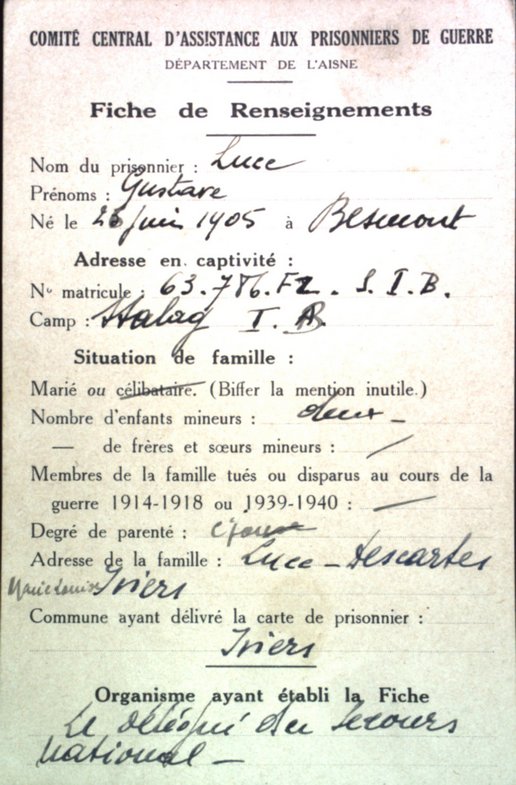 COMITÉ CENTRAL D'ASSISTANCE AUX PRISONNIERS DE GUERRE
DÉPARTEMENT DE L'AISNE
Fiche de Renseignements
Nom du prisonnier : Luce
Prénoms : Gustave
Né le 25 juin 1905 à Besmont
Adresse en captivité :
No matricule : 63.786.F2. S.I.B.
Camp : Stalag I.
Situation de famille :
Marié ou célibataire. (Biffer la mention inutile.)
Nombre d'enfants mineurs : deux -
— de frères et sœurs mineurs : /
Membres de la famille tués ou disparus au cours de la
guerre 1914-1918 ou 1939-1940 : —
Degré de parenté :
Adresse de la famille : Luce - Descartes
Marie Louise Iviers
Commune ayant délivré la carte de prisonnier :
Iviers
Organisme ayant établi la Fiche
Le délégué du Secours
National -